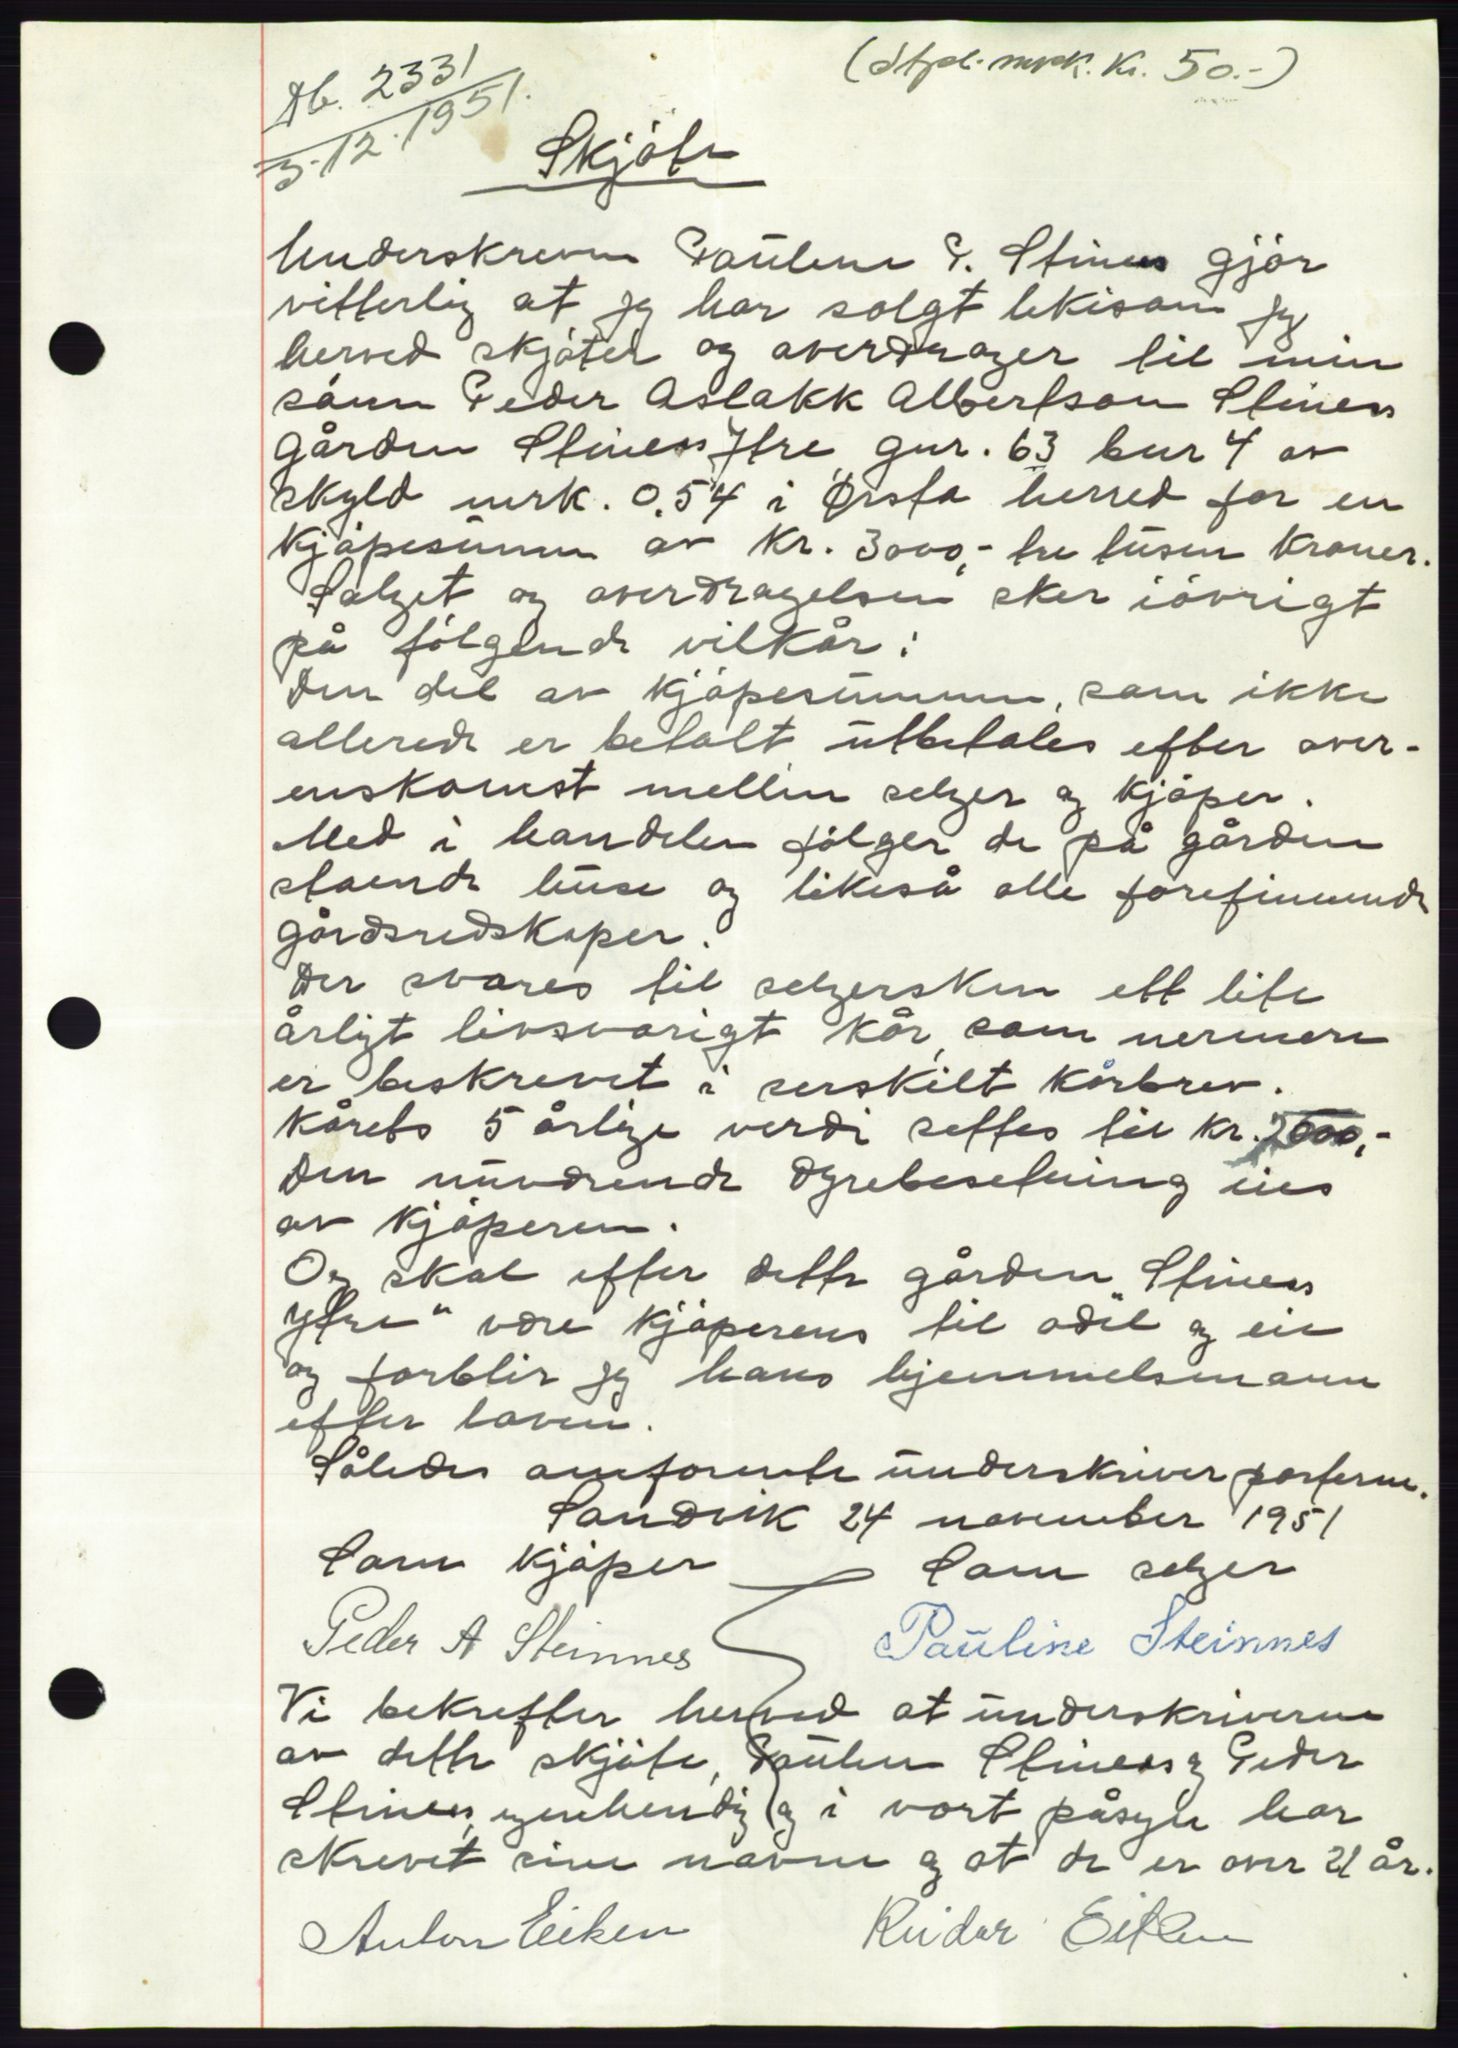 Db. 2331
3.12.1951.
(Stpl. mrk. Kr. 50.-)
Skjøte
Underskreven Pauline P. Steines gjör
vitterlig at jeg har solgt likesom jeg
herved skjöter og averdrager til min
sönn Peder Aslakk Albertson Steines
gården Steines Ytre gnr. 63 bnr 4 av
skyld mrk. 0.54 i Ørsta herred for en
kjöpesumm av Kr. 3000,- tre tusen Kroner.
Salget og overdragelsen sker iövrigt
på fölgende vilkår:
Den del av kjöpesummen, som ikke
allerede er betalt utbetales efter over-
enskomst mellem selger og kjöper.
Med i handelen fölger de på gården
staende huse og likeså alle forefinnende
gårdsredskaper.
Der svares til selgersken ett lite
årligt livsvarigt kår, som nermere
er beskrevet i serskilt kårbrev.
Kårets 5 årlige verdi settes til Kr. 2000,-
Den nuvdrende dyrebesetning eies
av kjöperen.
Og skal efter dette gården "Steines
Ytre" vdre kjöperens til odel og eie
og forblir jeg hans hjemmelsmann
efter loven.
Således omforente underskriver parterne.
Sandvik 24 november 1951
Som kjöper
Som selger
Peder A Steinnes
Pauline Steinnes
Vi bekrefter herved at underskriverne
av dette skjöte, Pauline Steines og Peder
Steines, egenhendig og i vort påsyn har
skrevet sine navne og at de er over 21 år.
Anton Eiken
Reidar Eiken